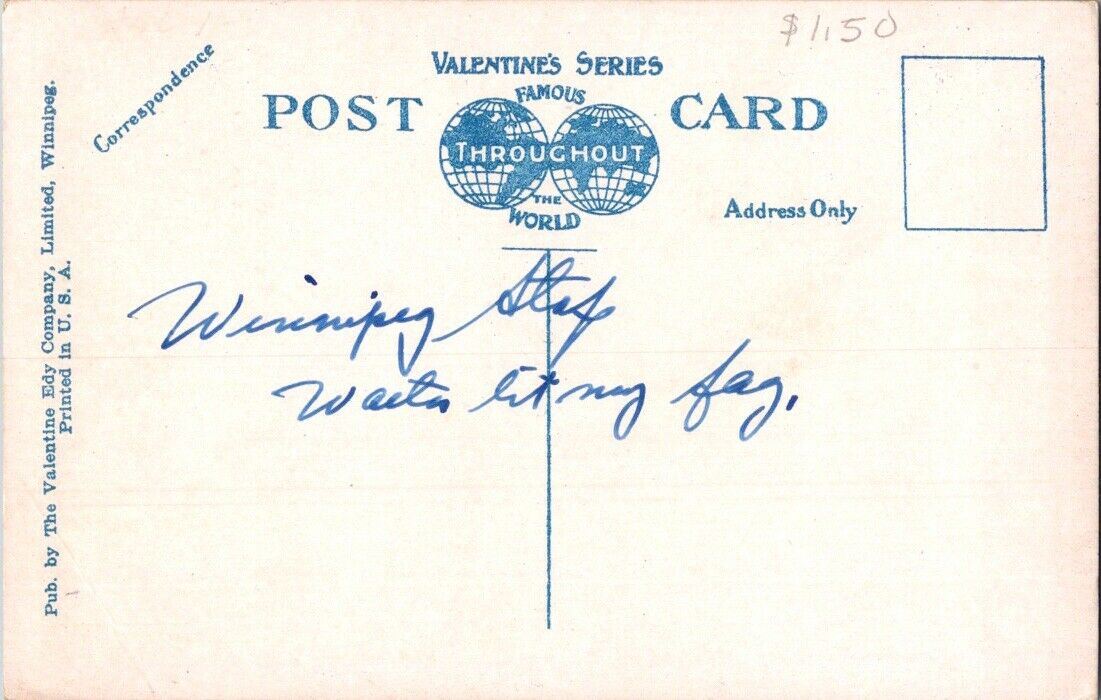 $1.50
VALENTINE'S SERIES
POST CARD
FAMOUS
THROUGHOUT
THE
WORLD
Correspondence
Address Only
Winnipeg Stop
Waiter lit my fag.
Pub. by The Valentine Edy Company, Limited, Winnipeg.
Printed in U. S. A.